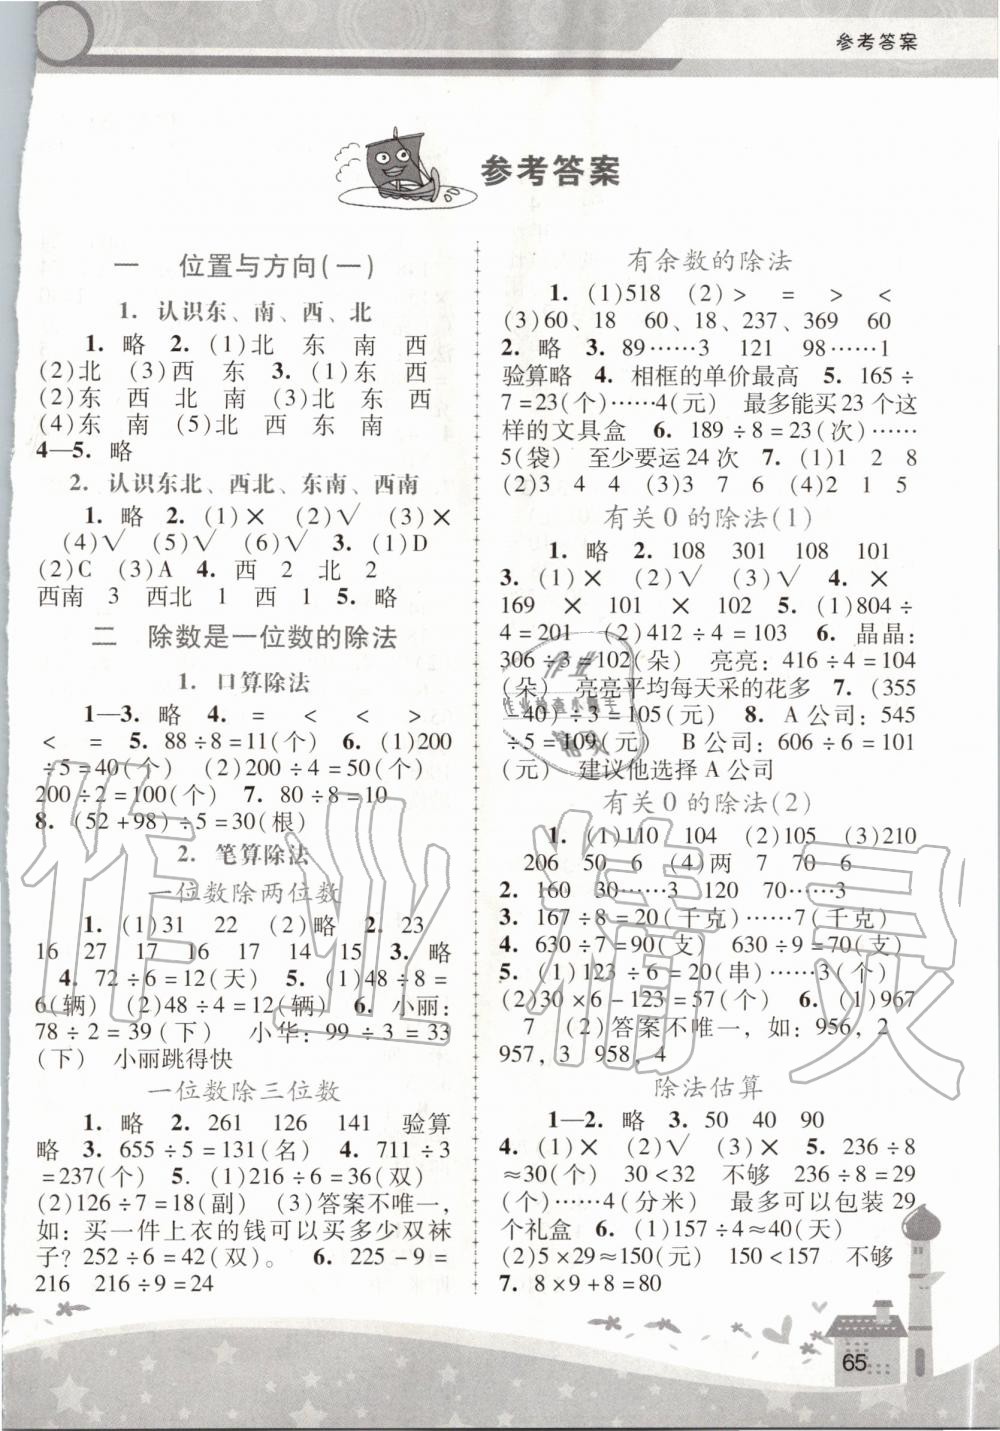 参考答案
参考答案
一 位置与方向(一)
1. 认识东、南、西、北
1. 略 2. (1)北 东 南 西
(2)北 (3)西 东 3. (1)东 西
(2)东 西 北 南 (3)北 东 西
(4)东 南 (5)北 西 东 南
4—5. 略
2. 认识东北、西北、东南、西南
1. 略 2. (1)× (2)√ (3)×
(4)√ (5)√ (6)√ 3. (1)D
(2)C (3)A 4. 西 2 北 2
西南 3 西北 1 西 1 5. 略
二 除数是一位数的除法
1. 口算除法
1—3. 略 4. = < < >
< = 5. 88÷8=11(个) 6. (1)200
÷5=40(个) (2)200÷4=50(个)
200÷2=100(个) 7. 80÷8=10
8. (52+98)÷5=30(根)
2. 笔算除法
一位数除两位数
1. (1)31 22 (2)略 2. 23
16 27 17 16 17 14 15 3. 略
4. 72÷6=12(天) 5. (1)48÷8=
6(辆) (2)48÷4=12(辆) 6. 小丽:
78÷2=39(下) 小华: 99÷3=33
(下) 小丽跳得快
一位数除三位数
1. 略 2. 261 126 141 验算
略 3. 655÷5=131(名) 4. 711÷3
=237(个) 5. (1)216÷6=36(双)
(2)126÷7=18(副) (3)答案不唯一,
如: 买一件上衣的钱可以买多少双袜
子? 252÷6=42(双)。 6. 225-9=
216 216÷9=24
有余数的除法
1. (1)518 (2)> = > <
(3)60、18 60、18、237、369 60
2. 略 3. 89……3 121 98……1
验算略 4. 相框的单价最高 5. 165÷
7=23(个)……4(元) 最多能买23个这
样的文具盒 6. 189÷8=23(次)……
5(袋) 至少要运24次 7. (1)1 2 8
(2)3 4 4 (3)3 7 6 (4)2 1 5
有关0的除法(1)
1. 略 2. 108 301 108 101
3. (1)× (2)√ (3)√ 4. ×
169 × 101 × 102 5. (1)804÷
4=201 (2)412÷4=103 6. 晶晶:
306÷3=102(朵) 亮亮: 416÷4=104
(朵) 亮亮平均每天采的花多 7. (355
-40)÷3=105(元) 8. A公司: 545
÷5=109(元) B公司: 606÷6=101
(元) 建议他选择A公司
有关0的除法(2)
1. (1)110 104 (2)105 (3)210
206 50 6 (4)两 7 70 6
2. 160 30……3 120 70……3
3. 167÷8=20(千克)……7(千克)
4. 630÷7=90(支) 630÷9=70(支)
5. (1)123÷6=20(串)……3(个)
(2)30×6-123=57(个) 6. (1)967
7 (2)答案不唯一, 如: 956, 2
957, 3 958, 4
除法估算
1—2. 略 3. 50 40 90
4. (1)× (2)√ (3)× 5. 236÷8
≈30(个) 30<32 不够 236÷8=29
(个)……4(分米) 最多可以包装29
个礼盒 6. (1)157÷4≈40(天)
(2)5×29≈150(元) 150<157 不够
7. 8×9+8=80
65
作业精灵
作业
作业检查小帮手